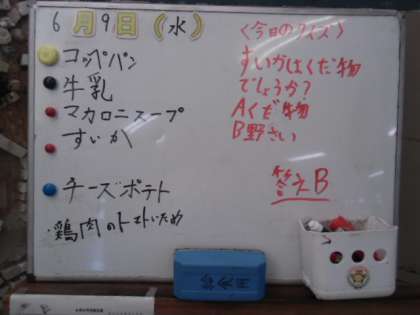 6月9日(水)
コッペパン
牛乳
マカロニスープ
すいか
チーズポテト
鶏肉のトマトいため
<今日のクイズ>
すいかはくだ物
でしょうか?
Aくだ物
B野さい
答えB